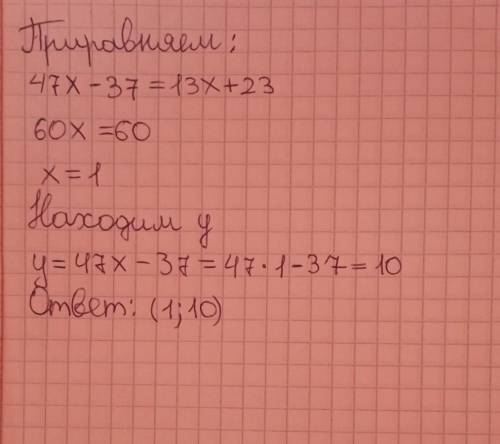 Приравняем:
47x - 37 = 13x + 23
60x = 60
x = 1
Находим y
y = 47x - 37 = 47 · 1 - 37 = 10
Ответ: (1; 10)